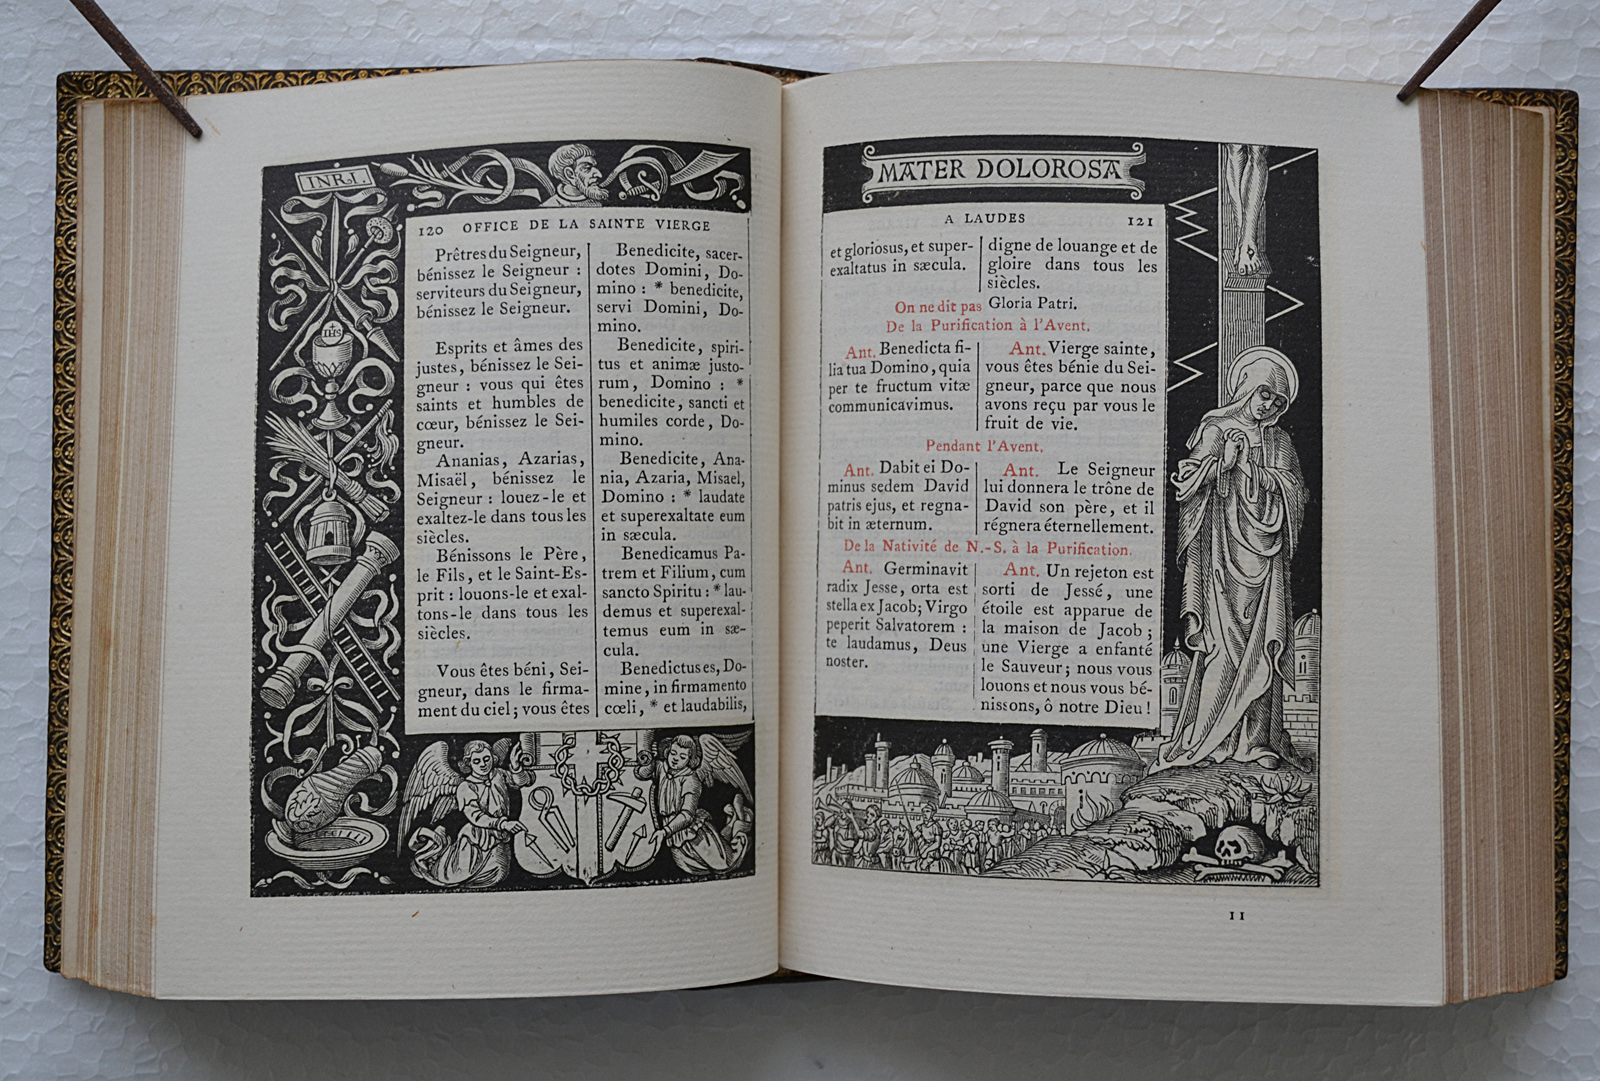 INRI.
IHS
120 OFFICE DE LA SAINTE VIERGE
Prêtres du Seigneur,
bénissez le Seigneur :
serviteurs du Seigneur,
bénissez le Seigneur.
Esprits et âmes des
justes, bénissez le Sei-
gneur : vous qui êtes
saints et humbles de
cœur, bénissez le Sei-
gneur.
Ananias, Azarias,
Misaël, bénissez le
Seigneur : louez-le et
exaltez-le dans tous les
siècles.
Bénissons le Père,
le Fils, et le Saint-Es-
prit : louons-le et exal-
tons-le dans tous les
siècles.
Vous êtes béni, Sei-
gneur, dans le firma-
ment du ciel ; vous êtes
Benedicite, sacer-
dotes Domini, Do-
mino : * benedicite,
servi Domini, Do-
mino.
Benedicite, spiri-
tus et animæ justo-
rum, Domino : *
benedicite, sancti et
humiles corde, Do-
mino.
Benedicite, Ana-
nia, Azaria, Misael,
Domino : * laudate
et superexaltate eum
in sæcula.
Benedicamus Pa-
trem et Filium, cum
sancto Spiritu : * lau-
demus et superexal-
temus eum in sæ-
cula.
Benedictus es, Do-
mine, in firmamento
cœli, * et laudabilis,
MATER DOLOROSA
A LAUDES 121
et gloriosus, et super-
exaltatus in sæcula.
digne de louange et de
gloire dans tous les
siècles.
On ne dit pas Gloria Patri.
De la Purification à l'Avent.
Ant. Benedicta fi-
lia tua Domino, quia
per te fructum vitæ
communicavimus.
Ant. Vierge sainte,
vous êtes bénie du Sei-
gneur, parce que nous
avons reçu par vous le
fruit de vie.
Pendant l'Avent.
Ant. Dabit ei Do-
minus sedem David
patris ejus, et regna-
bit in æternum.
Ant. Le Seigneur
lui donnera le trône de
David son père, et il
régnera éternellement.
De la Nativité de N.-S. à la Purification.
Ant. Germinavit
radix Jesse, orta est
stella ex Jacob; Virgo
peperit Salvatorem :
te laudamus, Deus
noster.
Ant. Un rejeton est
sorti de Jessé, une
étoile est apparue de
la maison de Jacob ;
une Vierge a enfanté
le Sauveur ; nous vous
louons et nous vous bé-
nissons, ô notre Dieu !
11